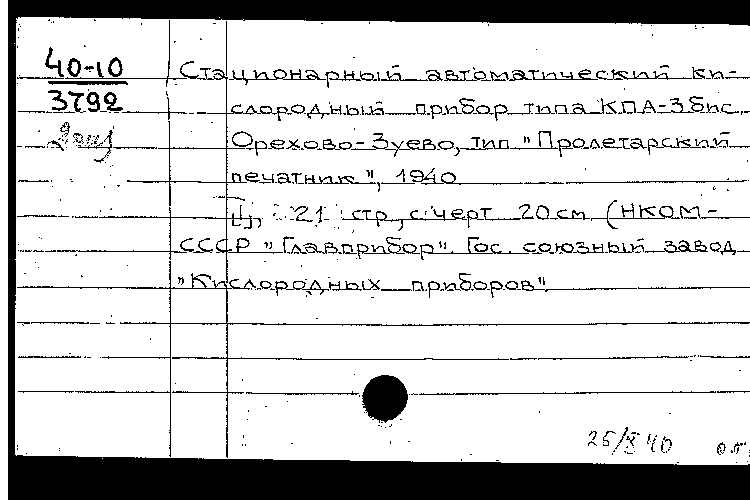 40-10
3792
2 экз
Стационарный автоматический ки-
слородный прибор типа КПА-3бис.
Орехово-Зуево, тип "Пролетарский
печатник", 1940.
[], 21 стр., с черт 20см (НКОМ-
СССР "Главприбор". Гос. союзный завод
"Кислородных приборов".
25/X 40